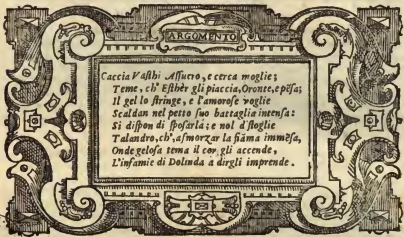 ARGOMENTO
Caccia Vasthi Assuero, e cerca moglie;
Teme, ch' Esthèr gli piaccia, Oronte, e pẽsa;
Il gel lo stringe, e l'amorose voglie
Scaldan nel petto suo battaglia intensa:
Si dispon di sposarla; e nol distoglie
Talandro, ch', asmorzar la fiãma immẽsa,
Onde gelosa tema il cor gli accende,
L'infamie di Dolinda à dirgli imprende.